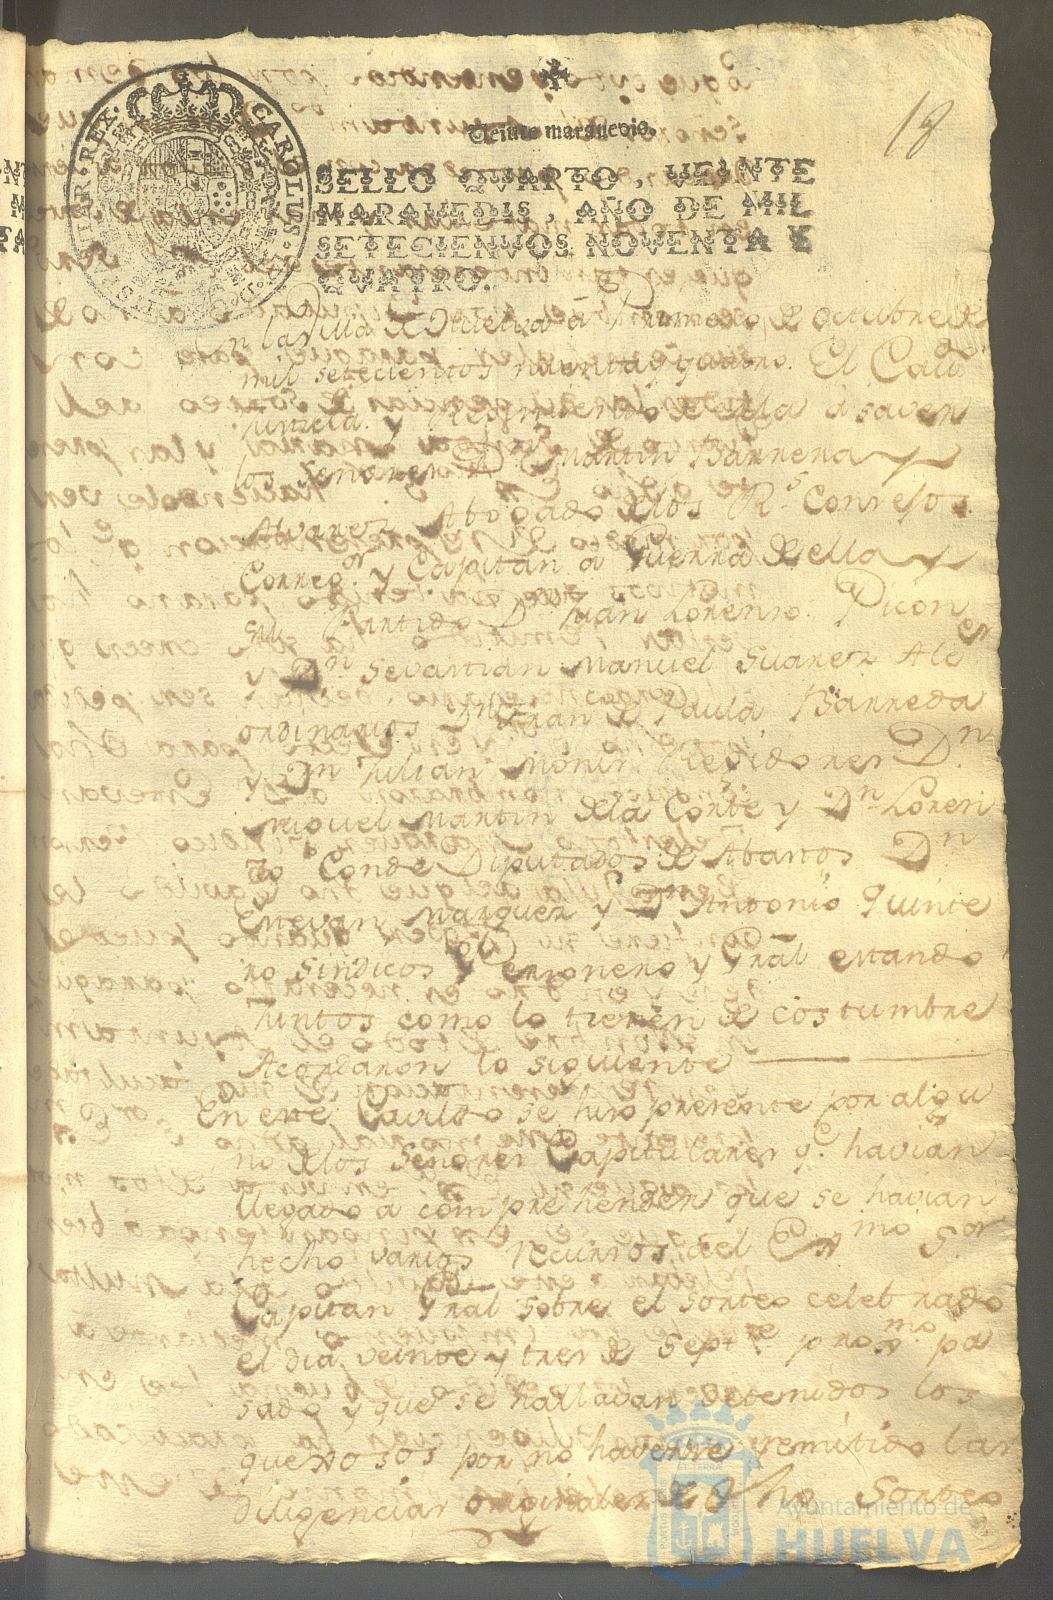 18
Veinte maravedis.
SELLO QVARTO, VEINTE
MARAVEDIS, AÑO DE MIL
SETECIENTOS NOVENTA Y
QVATRO.
CAROLUS
En la villa de Huelva a Primero de octubre de
mil setecientos noventa y quatro. El Cavdo
Justicia y Regimiento de ella a saver
los señores Dn Martin Barrera y
Alvarez Abogado de los Rs Consejos
Corregor y Capitan a Guerra de ella y
su Partido Dn Juan Lorenzo Picon
y Dn Sevastian Manuel Suarez Alces
ordinarios Dn Fran de Paula Barreda
y Dn Julian Monir Rexidores Dn
Miguel Martin de la Corte y Dn Loren
zo Conde Diputados de Abastos Dn
Estevan Marquez y Dn Antonio Quinte
ro sindicos Personero y Gral estando
Juntos como lo tienen de costumbre
Acordaron lo siguiente
En este Cavildo se hizo presente por algu
no de los Señores Capitulares qe havian
llegado a comprehender que se havian
hecho varios recursos del Exmo Sor
Capitan Gral sobre el sorteo celebrado
el dia veinte y tres de Septre proxmo pa
sado y que se hallavan detenidos los
quexosos por no haverse remitido las
diligencias originales de dho Sorteo
Ayuntamiento de
HUELVA